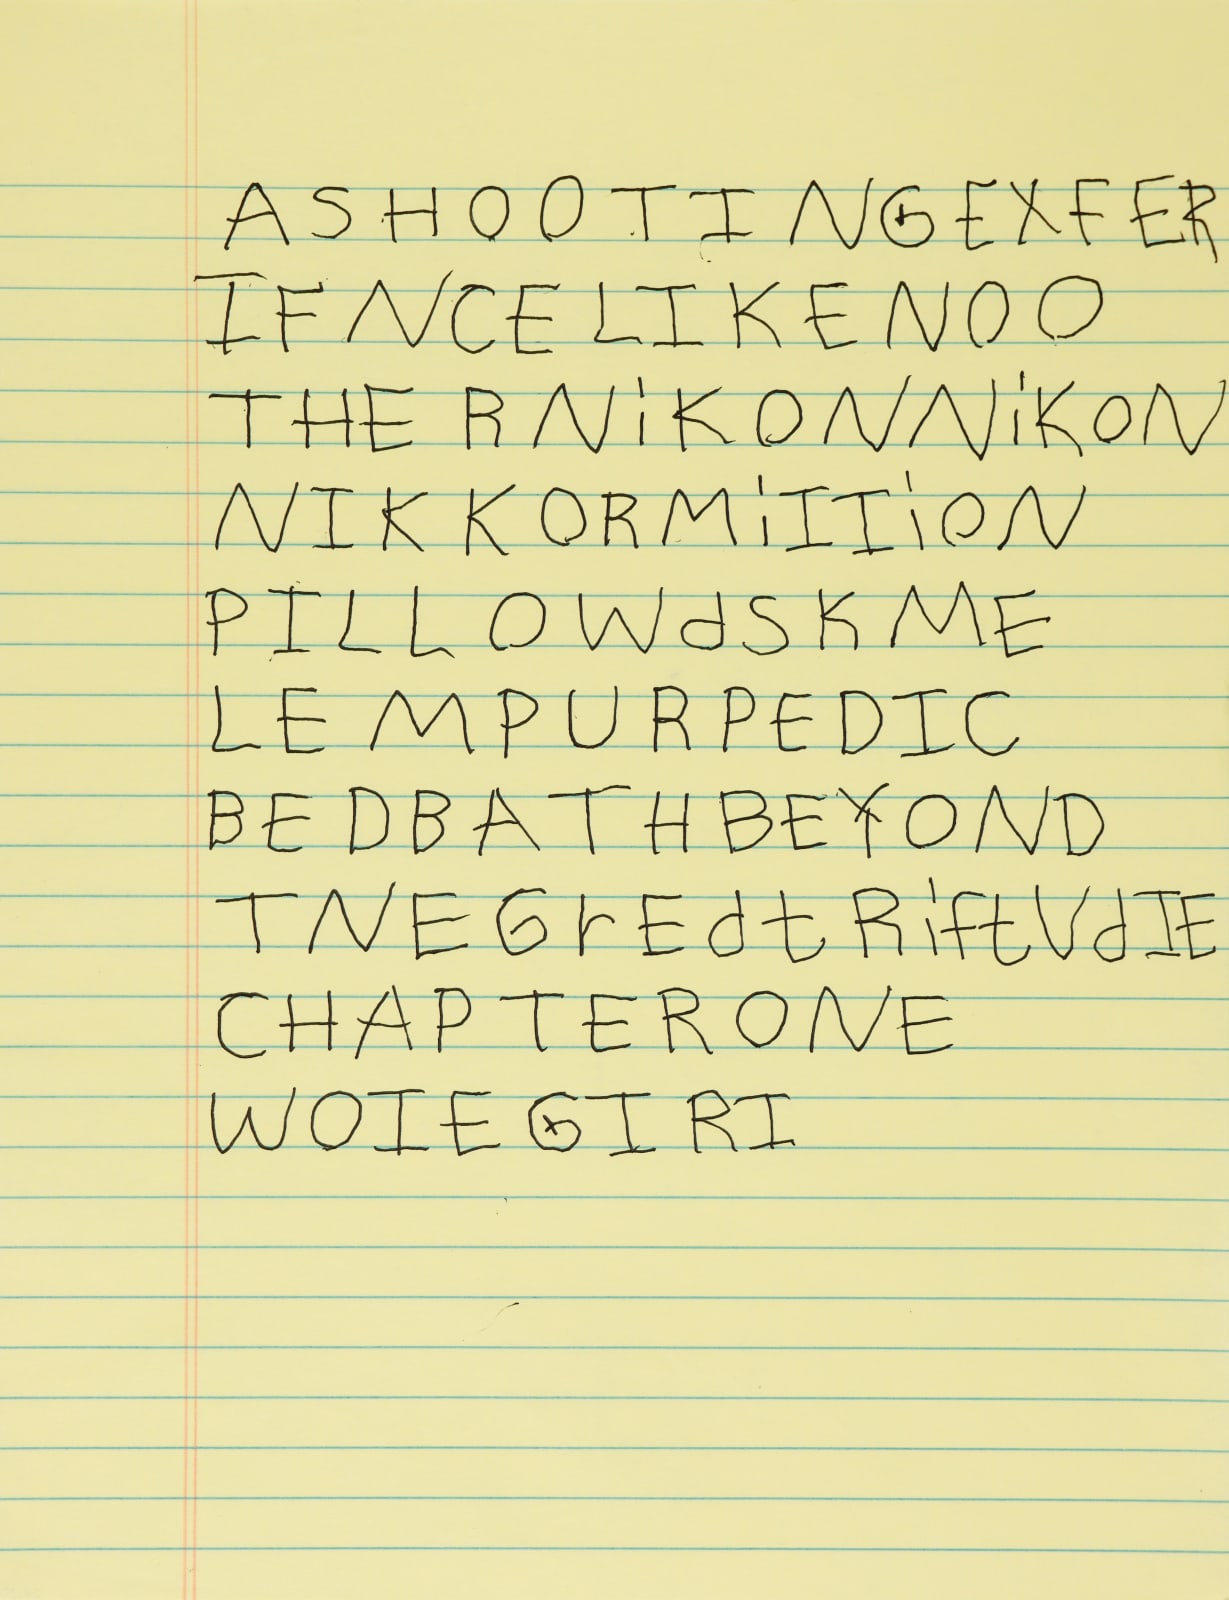 ASHOOTINGEXFER
IFNCELIKENOO
THERNiKONNiKON
NIKKORMiIIiON
PILLOWdSKME
LEMPURPEDIC
BEDBATHBEYOND
TNEGrEdtRiftVdIE
CHAPTERONE
WOIEGIRI